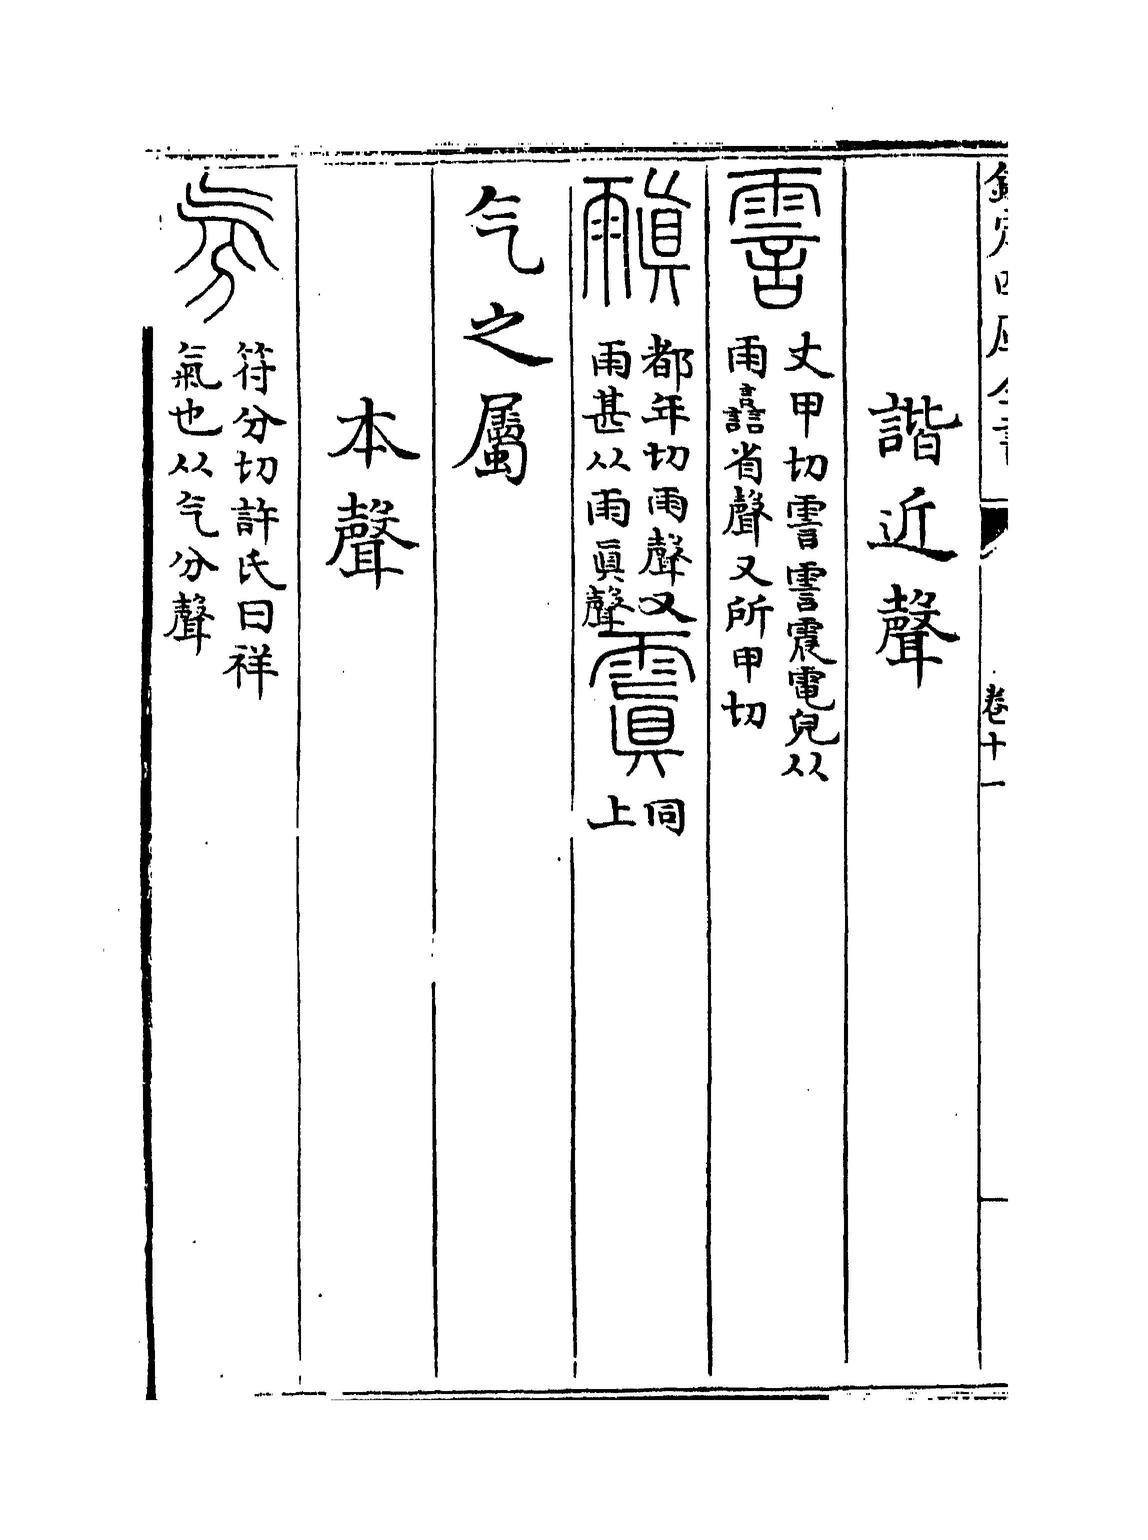 欽定四庫全書
卷十一
諧近聲
䨮 丈甲切䨮䨮震電皃从
雨譶省聲又所甲切
䨯 都年切雨聲又
雨甚从雨眞聲
霣 同
上
气之屬
本聲
氛 符分切許氏曰祥
氣也从气分聲